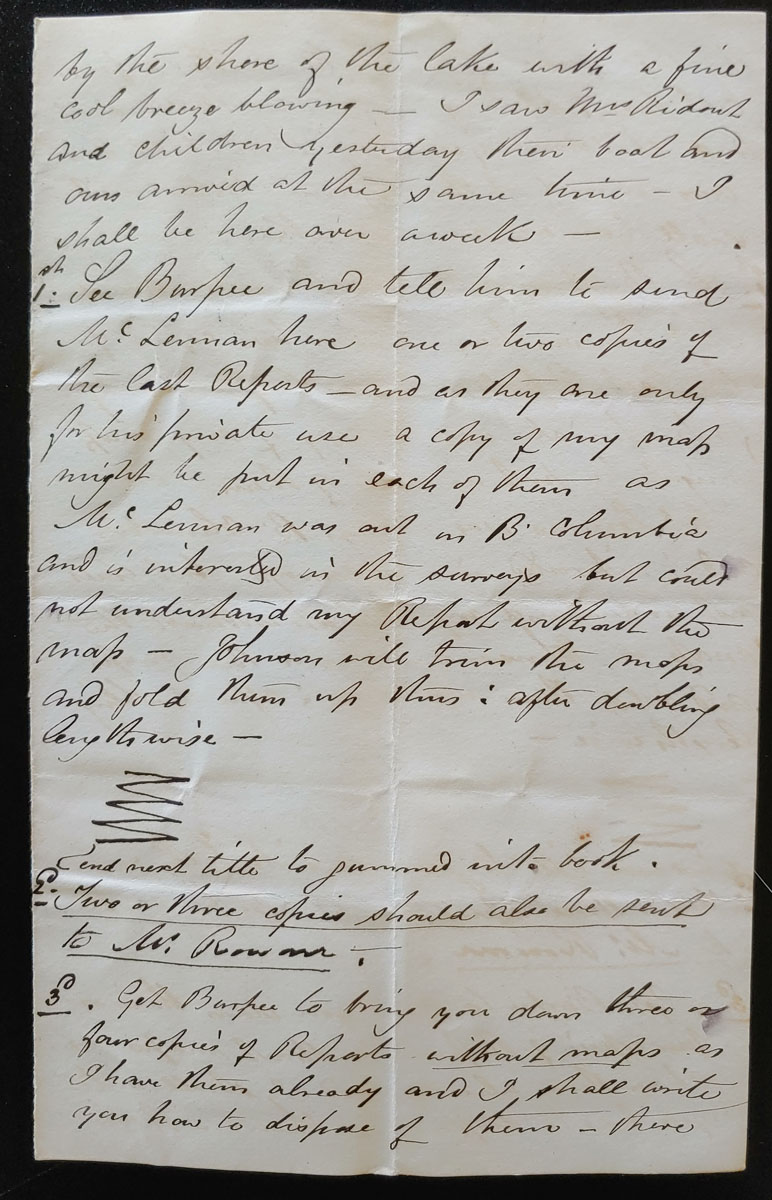 by the shore of the lake with a fine
cool breeze blowing — I saw Mrs Ridout
and children yesterday their boat and
ours arrived at the same time — I
shall be here over a week —
1st. See Burpee and tell him to send
Mc Lennan here one or two copies of
the last Reports — and as they are only
for his private use a copy of my map
might be put in each of them as
Mc Lennan was out in B. Columbia
and is interested in the surveys but could
not understand my Report without the
map — Johnson will trim the maps
and fold them up thus: after doubling
lengthwise —
end next title to gummed into book.
2d. Two or three copies should also be sent
to Mr. Rowan.
3d. Get Burpee to bring you down three or
four copies of Reports without maps as
I have them already and I shall write
you how to dispose of them — there